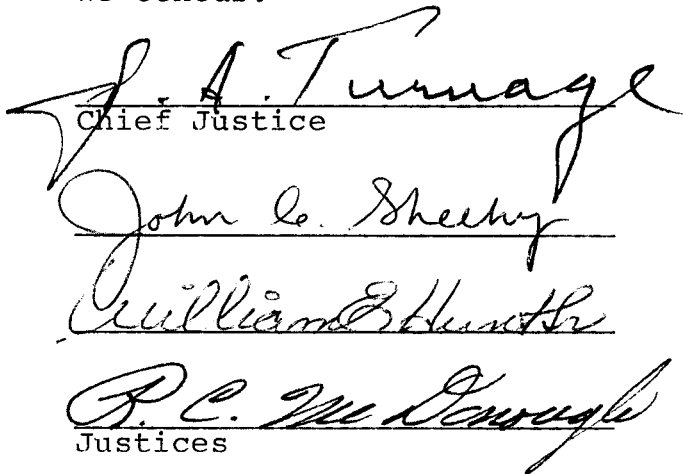 We concur:
J. A. Turnage
Chief Justice
John C. Sheehy
William E Hunt Sr
R. C. McDonough
Justices